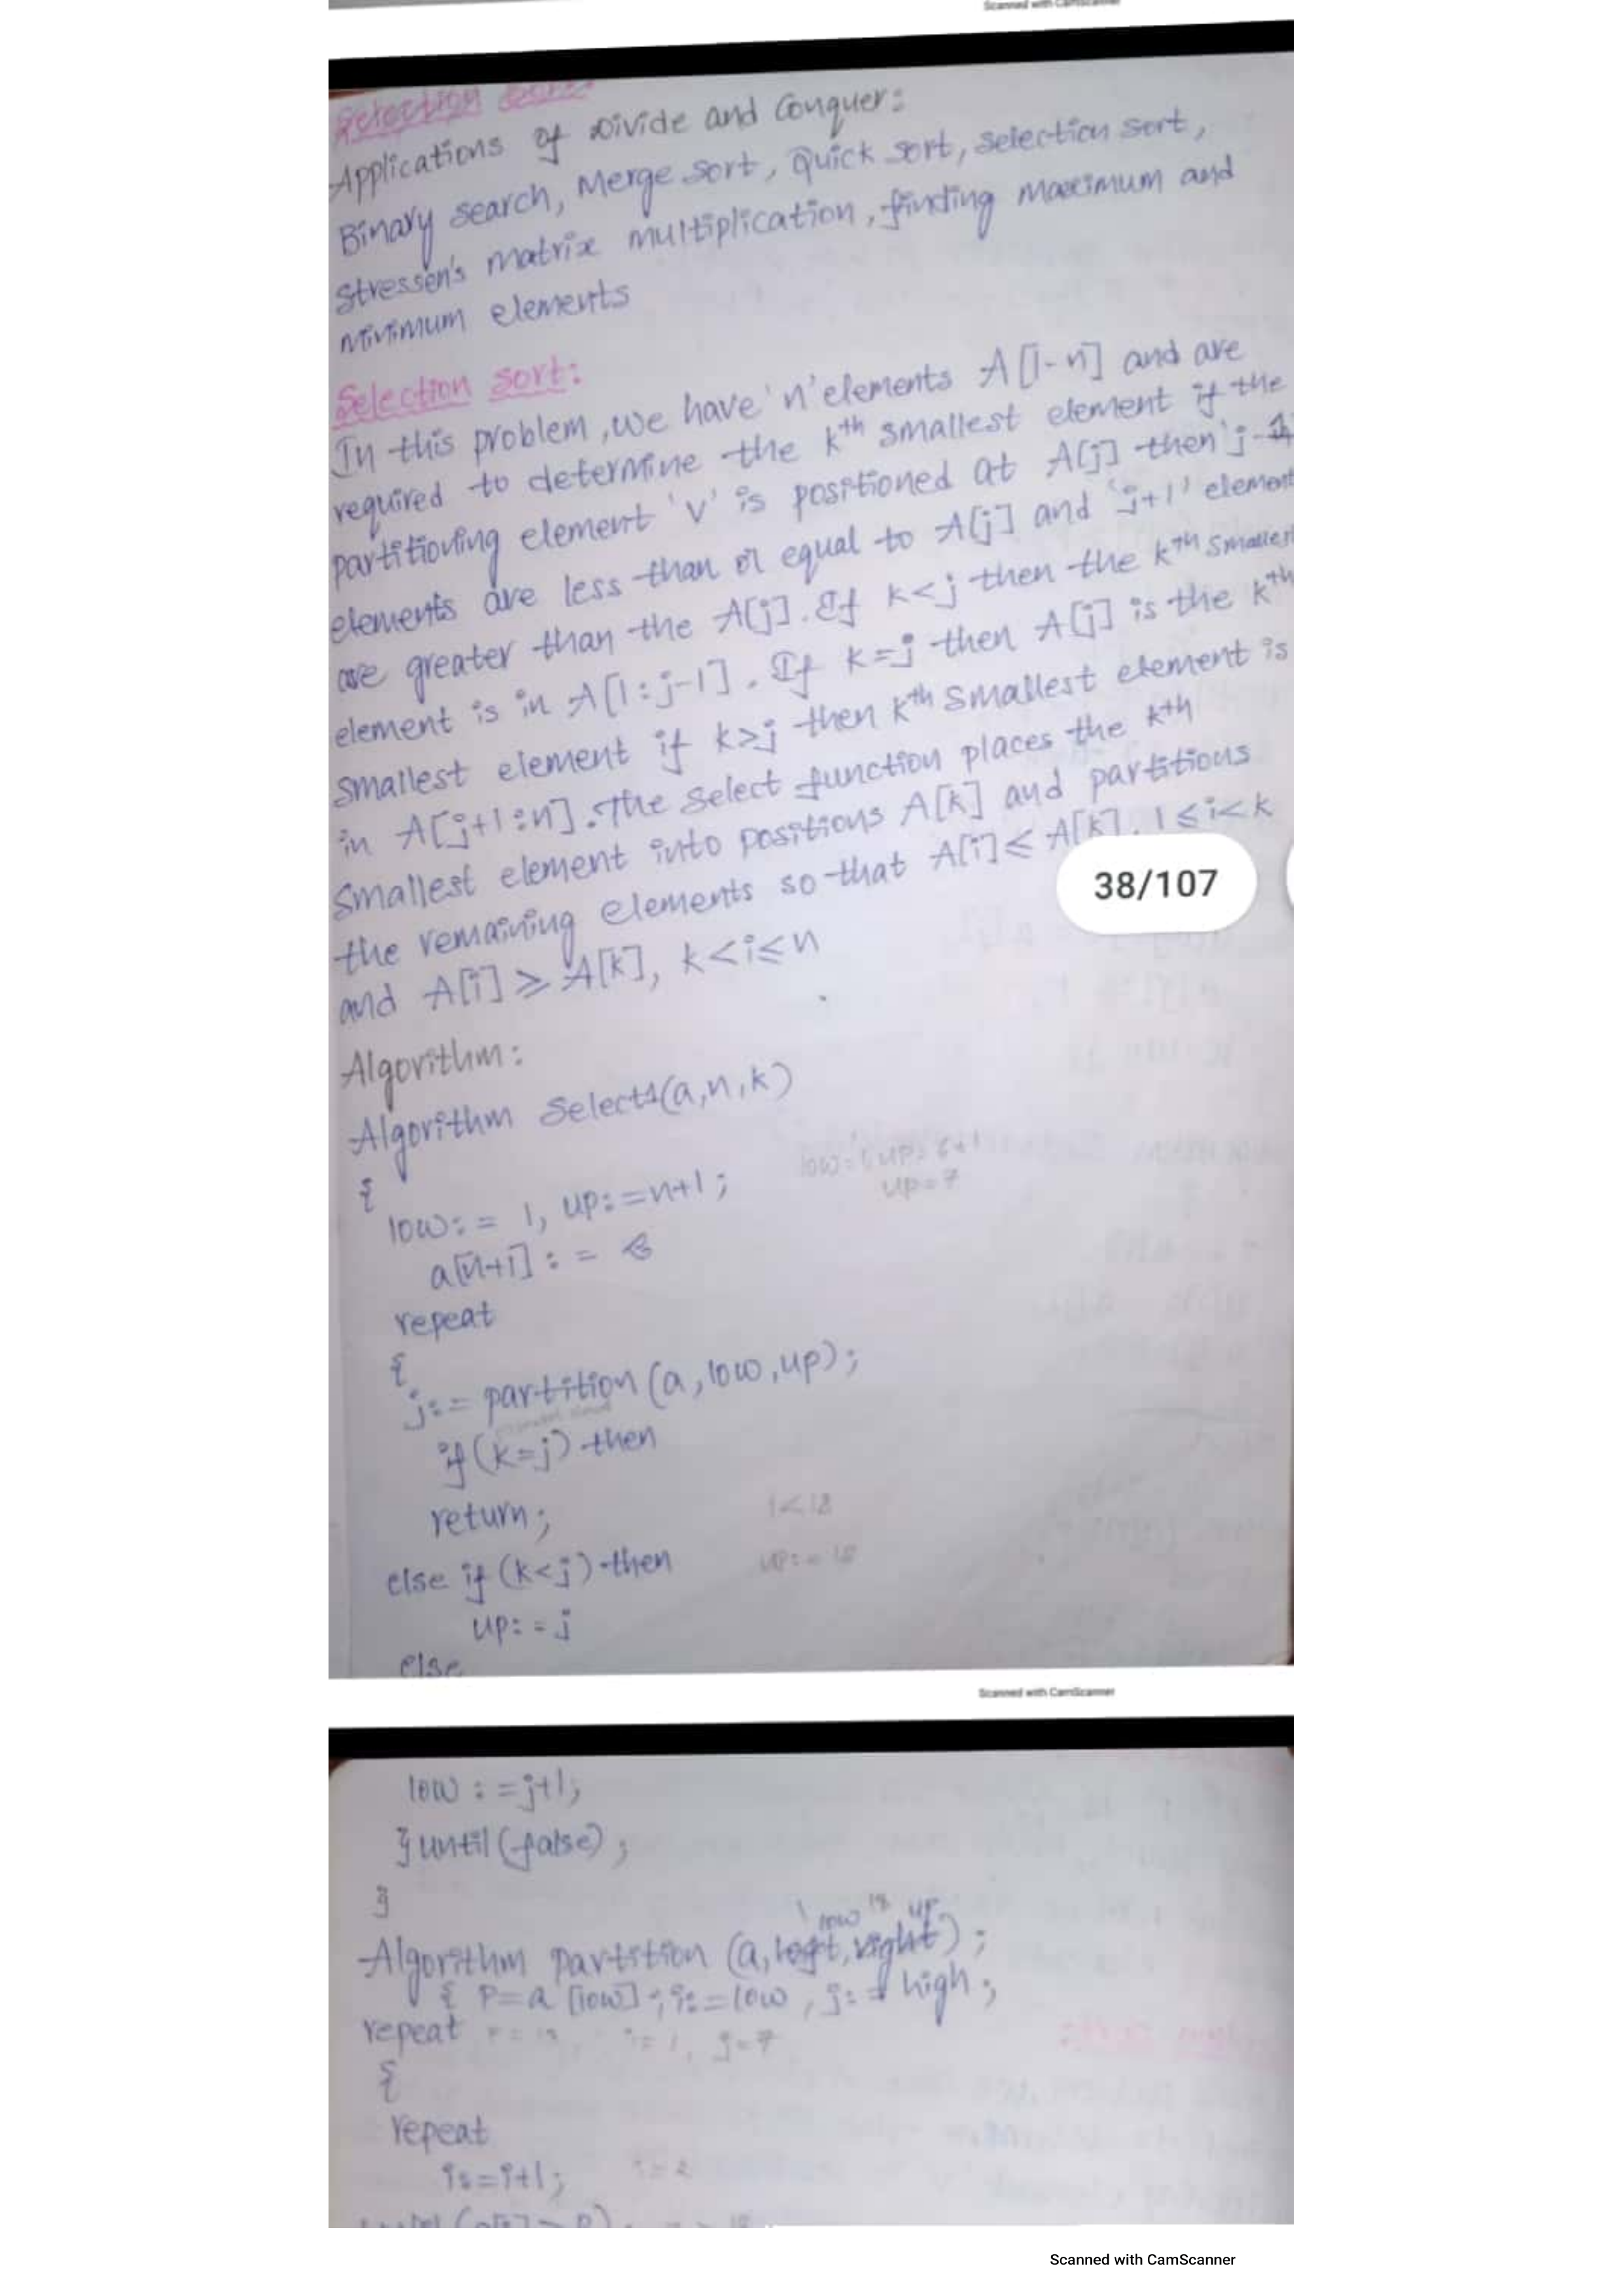 Scanned with CamScanner
Selection Sort:
Applications of Divide and Conquer:
Binary search, Merge sort, Quick sort, selection sort,
stressen's matrix multiplication, finding maximum and
minimum elements
Selection sort:
In this problem, we have 'n' elements A[1-n] and are
required to determine the kth smallest element if the
partitioning element 'v' is positioned at A[j] then 'j-1'
elements are less than or equal to A[j] and 'j+1' element
are greater than the A[j]. If k<j then the kth smallest
element is in A[1:j-1]. If k=j then A[j] is the kth
smallest element if k>j then kth smallest element is
in A[j+1:n]. The Select function places the kth
smallest element into positions A[k] and partitions
the remaining elements so that A[i]≤ A[k], 1≤i<k
38/107
and A[i] ≥ A[k], k<i≤n
Algorithm:
Algorithm Select1(a,n,k)
{
low:= 1, up:=n+1; low=1 up=6+1
up=7
a[n+1]:=
repeat
{
j:= partition (a,low,up);
if (k=j) then
return; 1<18
else if (k<j) then up:= 18
up:=j
else
Scanned with CamScanner
low:=j+1;
} until (false);
}
1 low 18 up
Algorithm partition (a, left, right);
{ P=a [low]; i:=low, j:= high;
repeat i=1, j=7
{
repeat
i:=i+1; i=2
Scanned with CamScanner